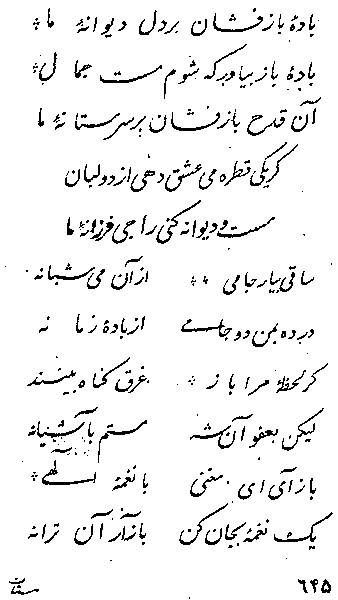 بادهٔ باز فشان بردل دیوانهٔ ما *
بادهٔ باز بیاور که شوم مست جمال *
آن قدح باز فشان برسر مستانهٔ ما
گر یکی قطره می عشق دهی از دو لبان
مست و دیوانه کنی راجی فرزانهٔ ما
ساقی بیار جامی * * از آن می شبانه
در ده بمن دو جامی از بادهٔ زمانه
گر لحظهٔ مرا باز * غرق گناه بینند
لیکن بعفو آن شه مستم بآشیانه
باز آی ای مغنی با نغمهٔ الهی *
یک نغمهٔ بجان کن باز آر آن ترانه
۶۲۵